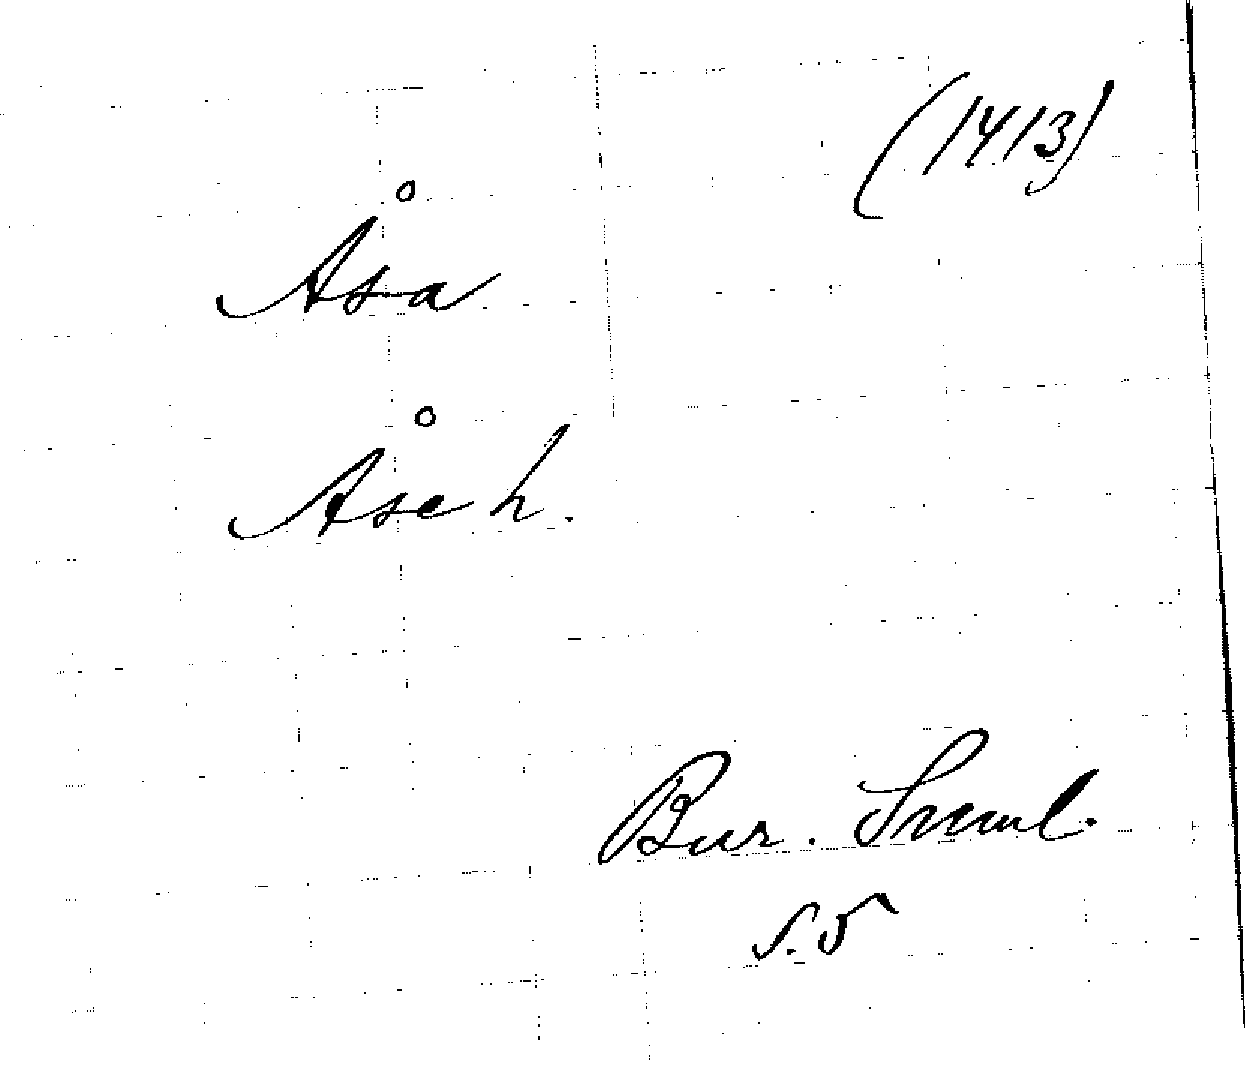 (1413)
Åsa
Åse h.
Bur. Sreml.
s. 5